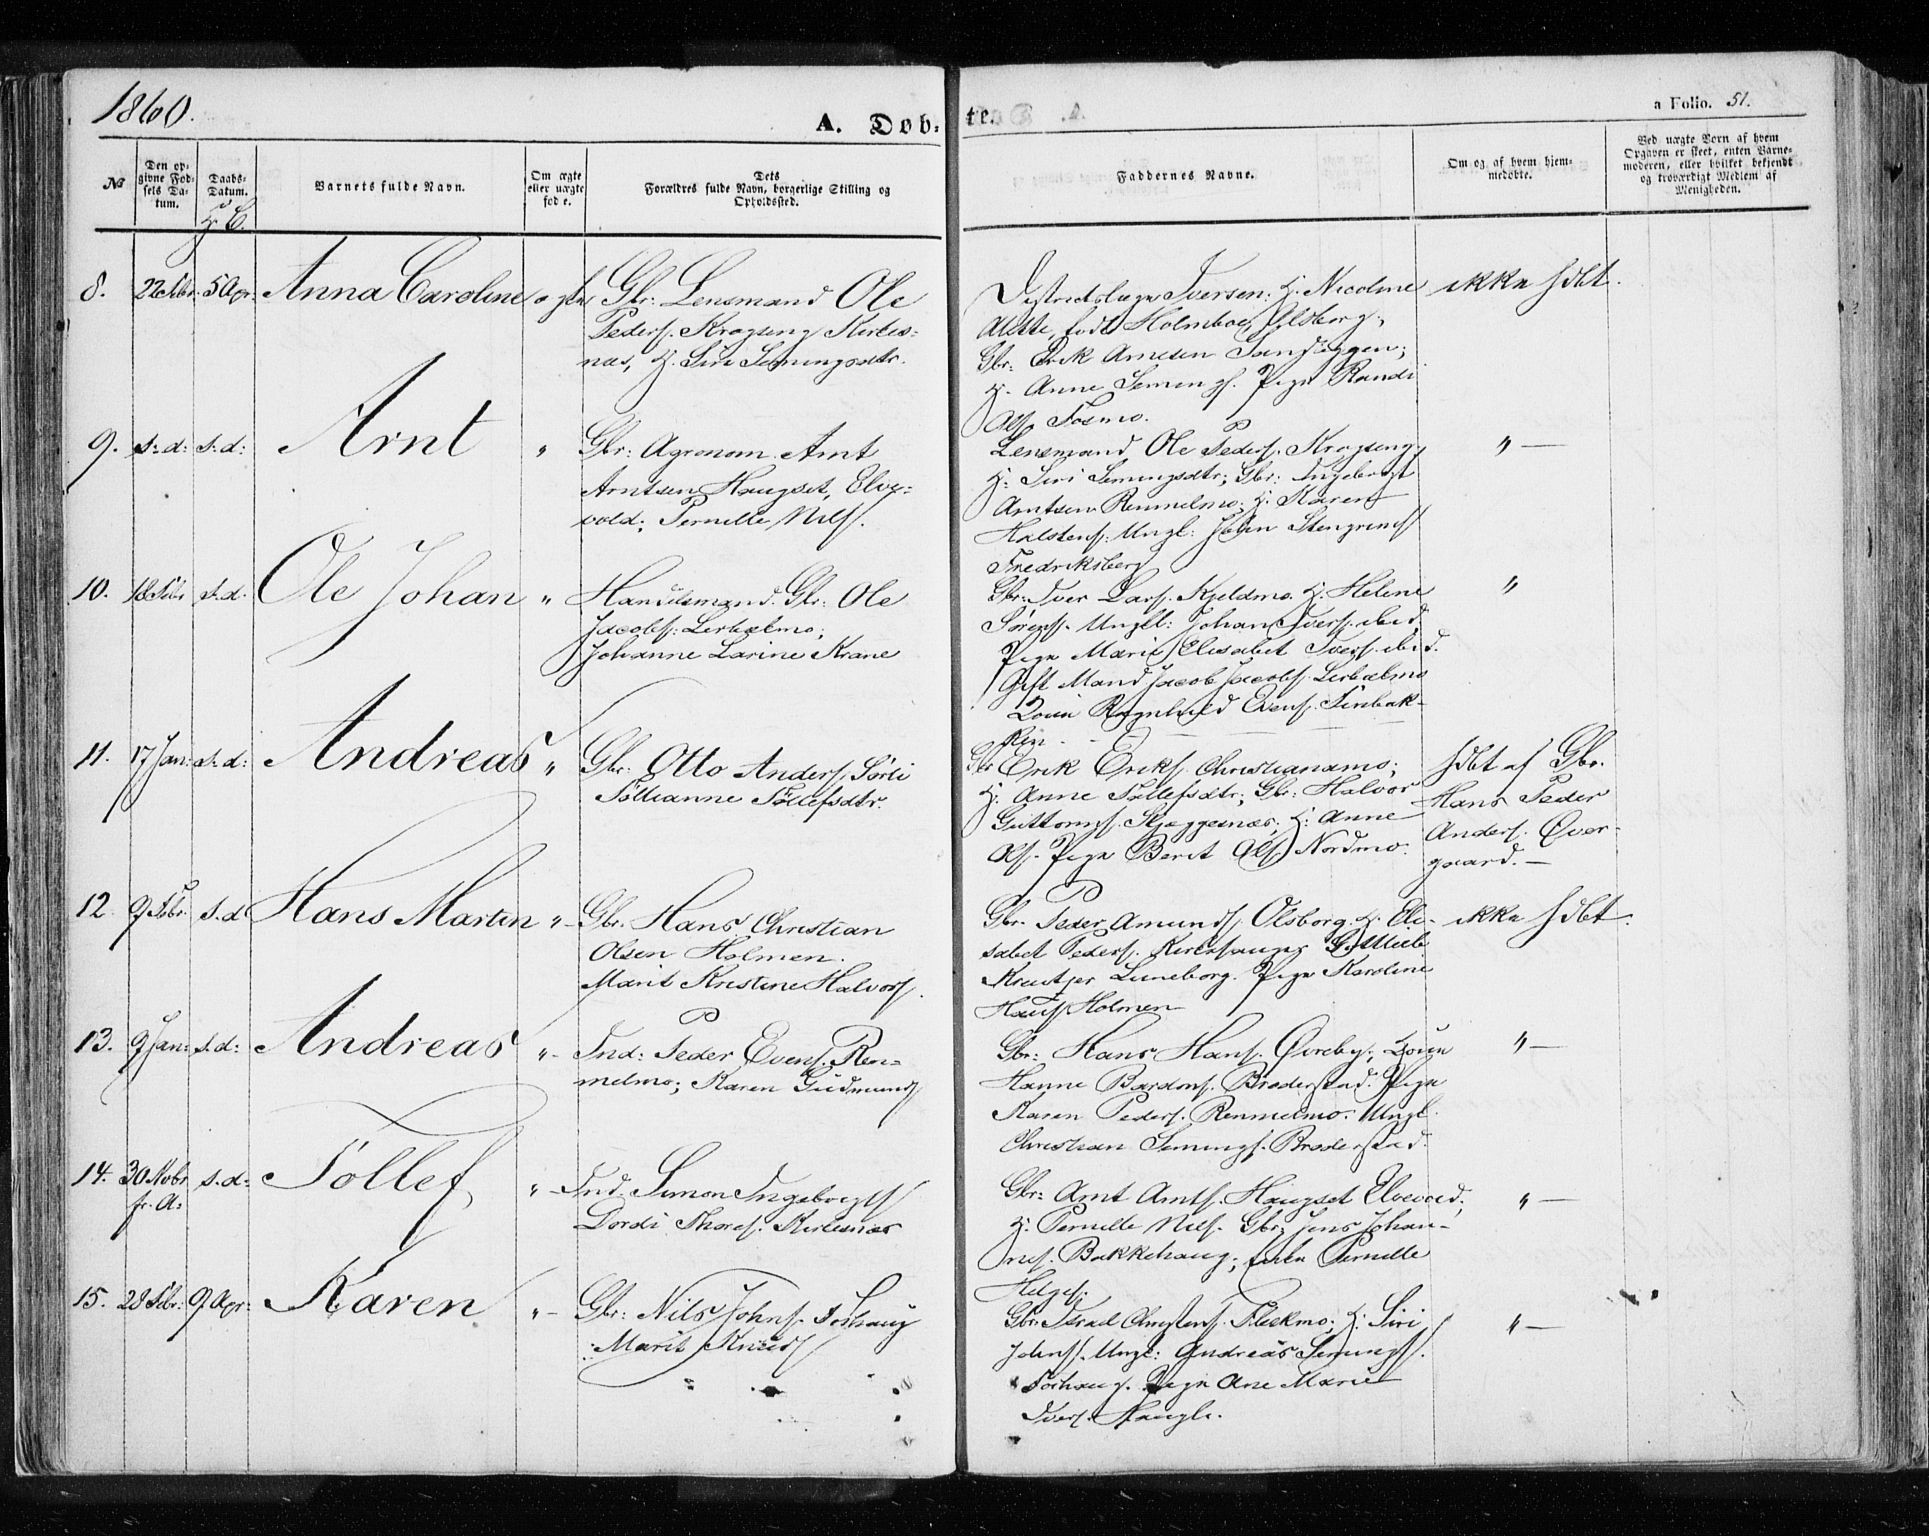 1860.
A. Dob-
te.
a Folio. 51.
№
Den opgivne Fodsels Datum.
Daabs-Datum.
Barnets fulde Navn.
Om ægte eller uægte fode.
Dets Forældres fulde Navn, borgerlige Stilling og Opholdssted.
Faddernes Navne.
Om og af hvem hjemmedobte.
Ved uægte Born af hvem Opgaven er skeet, enten Barnemoderen, eller hvilket bekjendt og troværdigt Medlem af Menigheden.
8. 22 Febr. 5 Apr. Anna Caroline ægte
Gbr: Lensmand Ole
Peders. Kragseng Kirkes-
næs, H. Siri Semingsdtr.
Destriktslæge Iversen: H. Nicoline
Alette, født Holmboe, Olsborg;
Gbr: Erik Arnesen Sandeggen;
H. Anne Semings. Pige Randi
Ols. Fosmo.
ikke hdbt.
9. s: d: s: d: Arnt "
Gbr: Agronom Arnt
Arntsen Haugset, Elve-
vold; Pernille Nils.
Lensmand Ole Peders. Kragseng,
H: Siri Semingsdtr; Gbr: Ingebrigt
Arntsen Renmelmo; H. Karen
Halstens: Ungl: John Stengrims
Fredriksberg
" —
10. 18 Febr s. d. Ole Johan "
Handelsmand. Gbr: Ole
Jacobs: Lerbælmo;
Johanne Larine Krane
Gbr: Iver Lars. Kjeldmo. H. Helene
Sørens. Ungl: Johan Ivers. ibid.
Pige Marie Elisabet Ivers. ibid.
Gift Mand Jacob Jacobs. Lerbælmo
Kone Ragnhild Evens. Finbak-
ken.
"
11. 17 Jan: s: d: Andreas "
Gbr: Otto Anders. Sørli
Tollianne Tollefsdtr.
Gbr Erik Eriks. Christianamo;
H. Anne Tollefsdtr; Gbr: Halvor
Guttorms. Skjeggesnæs; H: Anne
Ols. Pige Berit Ols. Nordmo.
hdbt af Gbr.
Hans Peder
Anders. Over-
gaard. —
12. 9 Febr. s. d Hans Martin " -
Gbr. Hans Christian
Olsen Holmen.
Marit Kristine Halvors.
Gbr. Peder Amunds. Olsborg H. Eli-
sabet Peders. Kirkesanger Gottlieb
Kreutzer Luneborg. Pige Karoline
Hans. Holmen
ikke hdbt.
13. 9 Jan: s. d: Andreas " -
Ind: Peder Evens. Ren-
melmo; Karen Gudmunds
Gbr: Hans Hans. Øvreby; Kone
Hanne Bardons. Broderstad. Pige
Karen Peders. Renmelmo. Ungl.
Christian Semings. Broderstad.
" —
14. 30 Novbr s. d: Tollef " -
fr. A:
Ind. Simon Ingebrigts
Dordi Thores. Kirkesnæs
Gbr: Arnt Arnts. Haugset Elvevold;
H. Pernille Nils. Gbr; Jens Johan-
nes. Bakkehaug; Enke Pernille
Helges:
" —
15. 28 Febr: 9 Apr: Karen " -
Gbr: Nils Johns. Foshaug
Marit Knuds
Gbr. Iver Flækmo; H. Siri
Johns. Ungl: Andreas Semings.
Foshaug. Pige Ane Marie
Ivers. Haugli.
" —